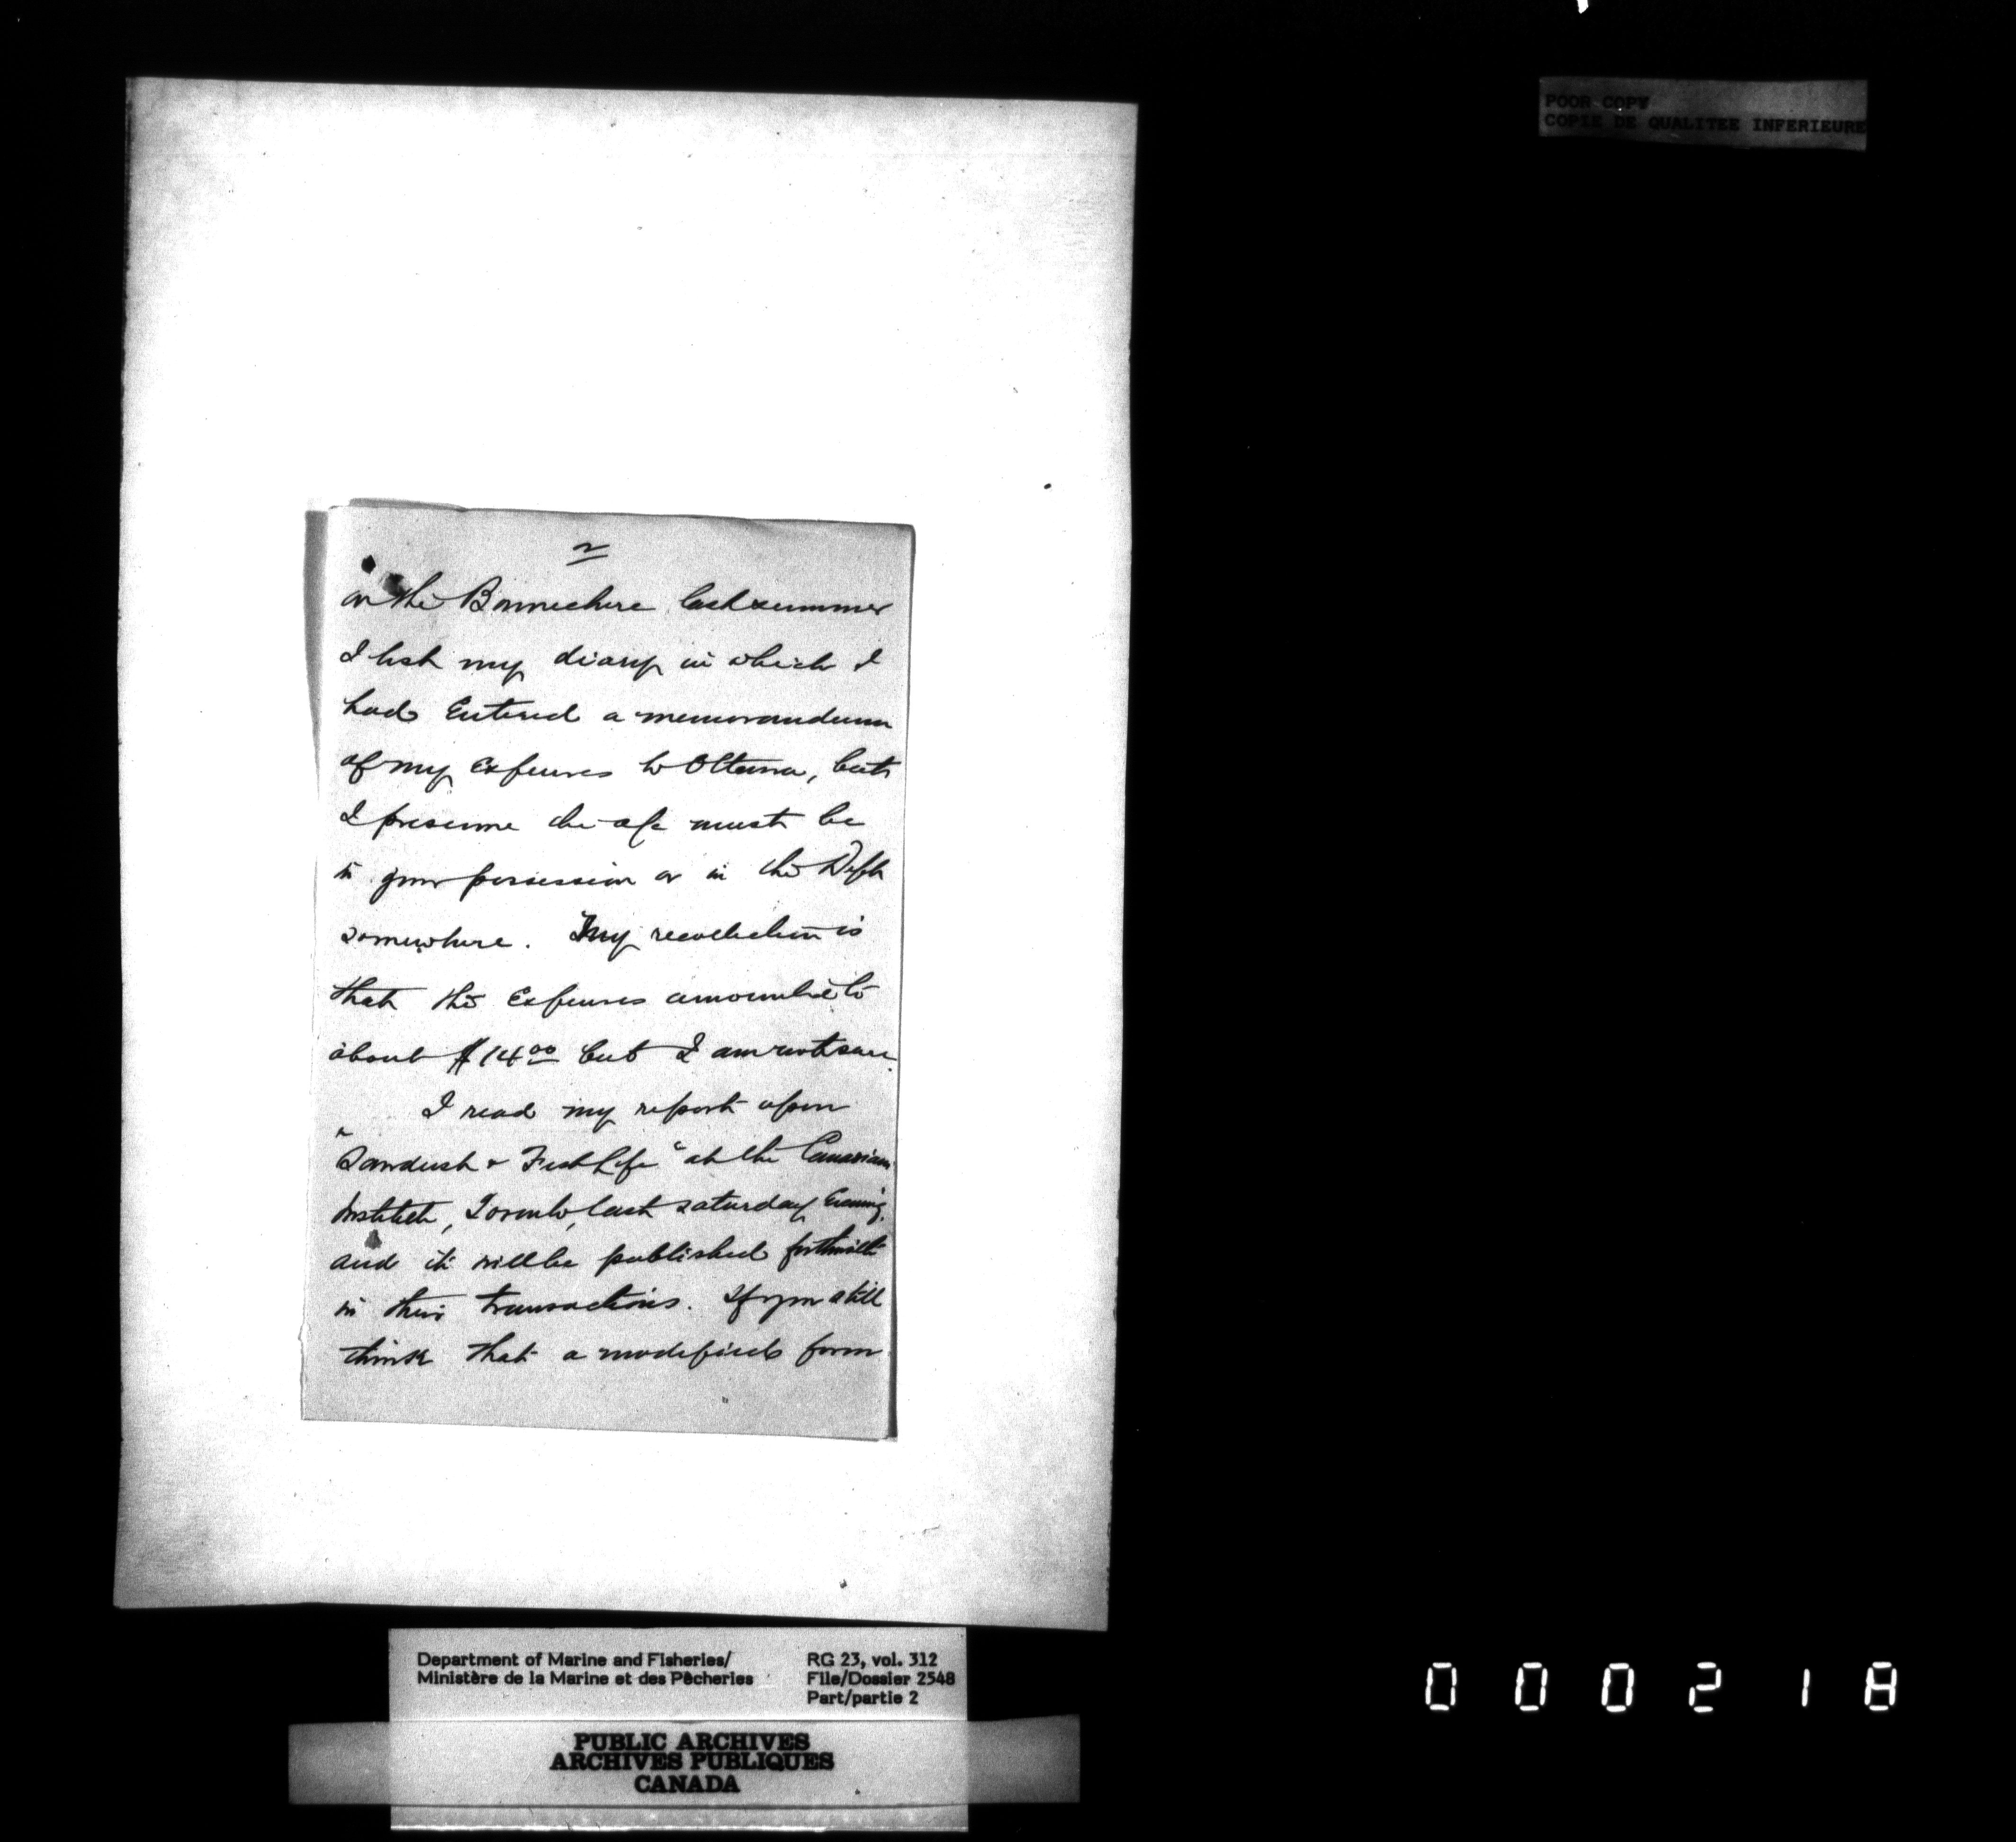 POOR COPY
COPIE DE QUALITEE INFERIEURE
2
on the Bonnechere last summer
I lost my diary in which I
had Entered a memorandum
of my Expenses to Ottawa, but
I presume the a/c must be
in your possession or in the Dept
somewhere. My recollection is
that the Expenses amounted to
about $14.00 but I am not sure.
I read my report upon
"Sawdust & Fish Life" at the Canadian
Institute, Toronto, last Saturday Evening,
and it will be published forthwith
in their transactions. If you still
think that a modified form
Department of Marine and Fisheries/
Ministère de la Marine et des Pêcheries
RG 23, vol. 312
File/Dossier 2548
Part/partie 2
PUBLIC ARCHIVES
ARCHIVES PUBLIQUES
CANADA
000218